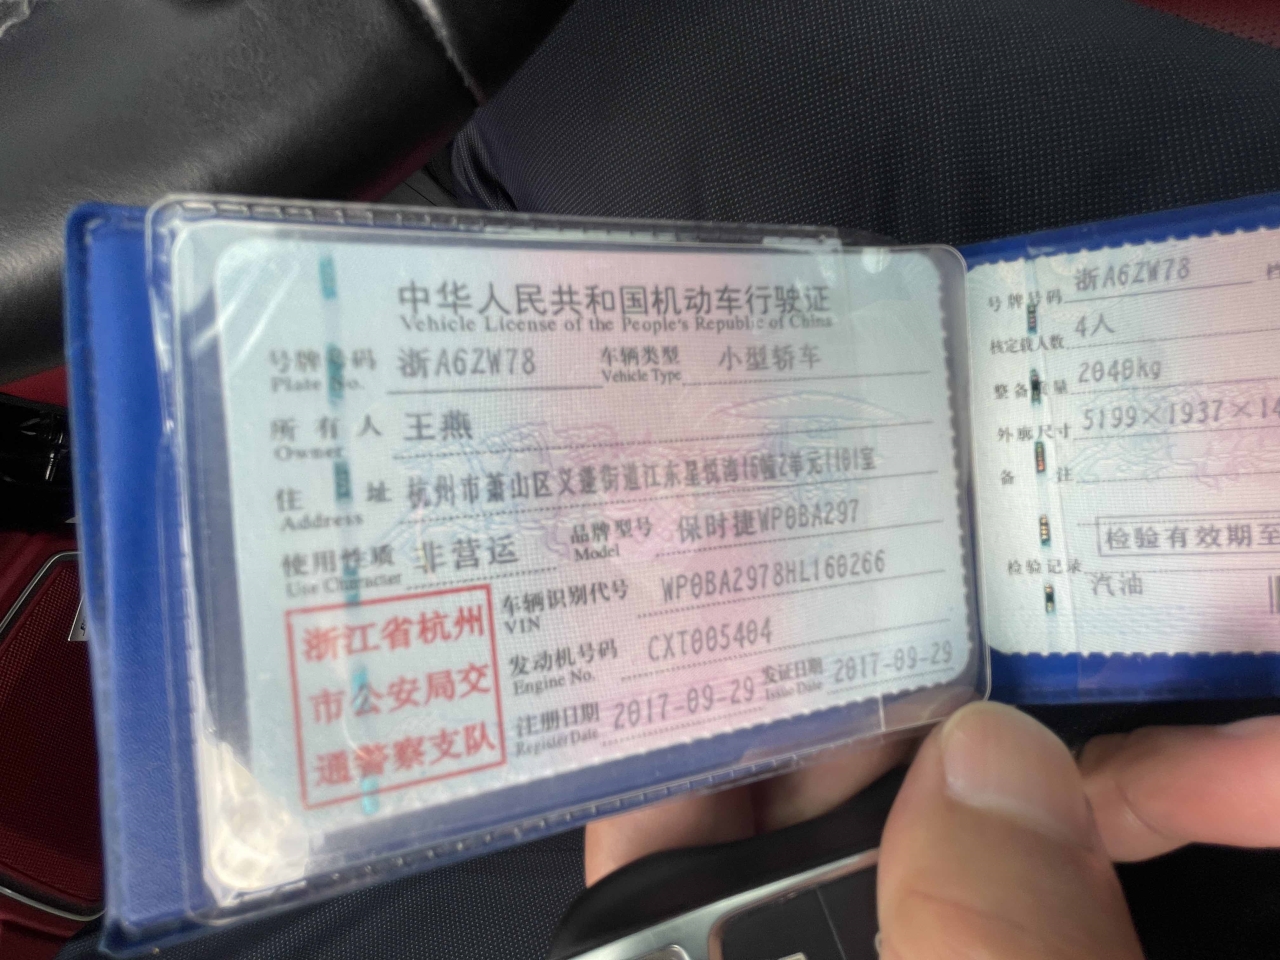 中华人民共和国机动车行驶证
Vehicle License of the People's Republic of China
号牌号码 浙A6ZW78 车辆类型 小型轿车
Plate No. Vehicle Type
所有人 王燕
Owner
住址 杭州市萧山区义蓬街道江东星悦湾15幢2单元1101室
Address
使用性质 非营运 品牌型号 保时捷WP0BA297
Use Character Model
浙江省杭州
市公安局交
通警察支队
车辆识别代号 WP0BA2978HL160266
VIN
发动机号码 CXT005404
Engine No.
注册日期 2017-09-29 发证日期 2017-09-29
Register Date Issue Date
号牌号码 浙A6ZW78
核定载人数 4人
整备质量 2040kg
外廓尺寸 5199×1937×14
备注
检验有效期至
检验记录
汽油